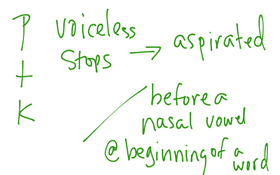 P voiceless
t stops → aspirated
K
/ before a
nasal vowel
@ beginning of a
word